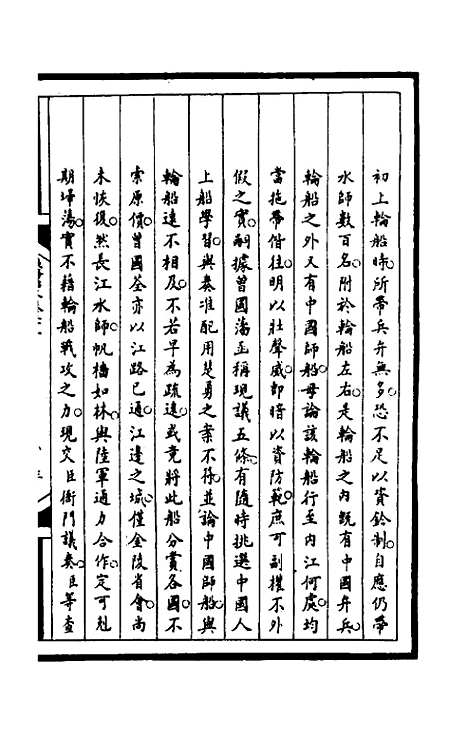 初上輪船時所帶兵弁無多恐不足以資鈐制自應仍帶
水師數百名附於輪船左右是輪船之內既有中國弁兵
輪船之外又有中國師船毋論該輪船行至內江何處均
當拖帶偕往明以壯聲威即時以資防範庶可副權不外
假之實嗣據曾國藩函稱現議五條有隨時挑選中國人
上船學習與奏准配用楚勇之案不符並論中國師船與
輪船遠不相及不若早為疏遠或竟將此船分賞各國不
索原價曾國荃亦以江路已通江邊之城僅金陵省會尚
未恢復然長江水師帆檣如林與陸軍通力合作定可剋
期埽蕩實不藉輪船戰攻之力現交臣衙門議奏臣等查